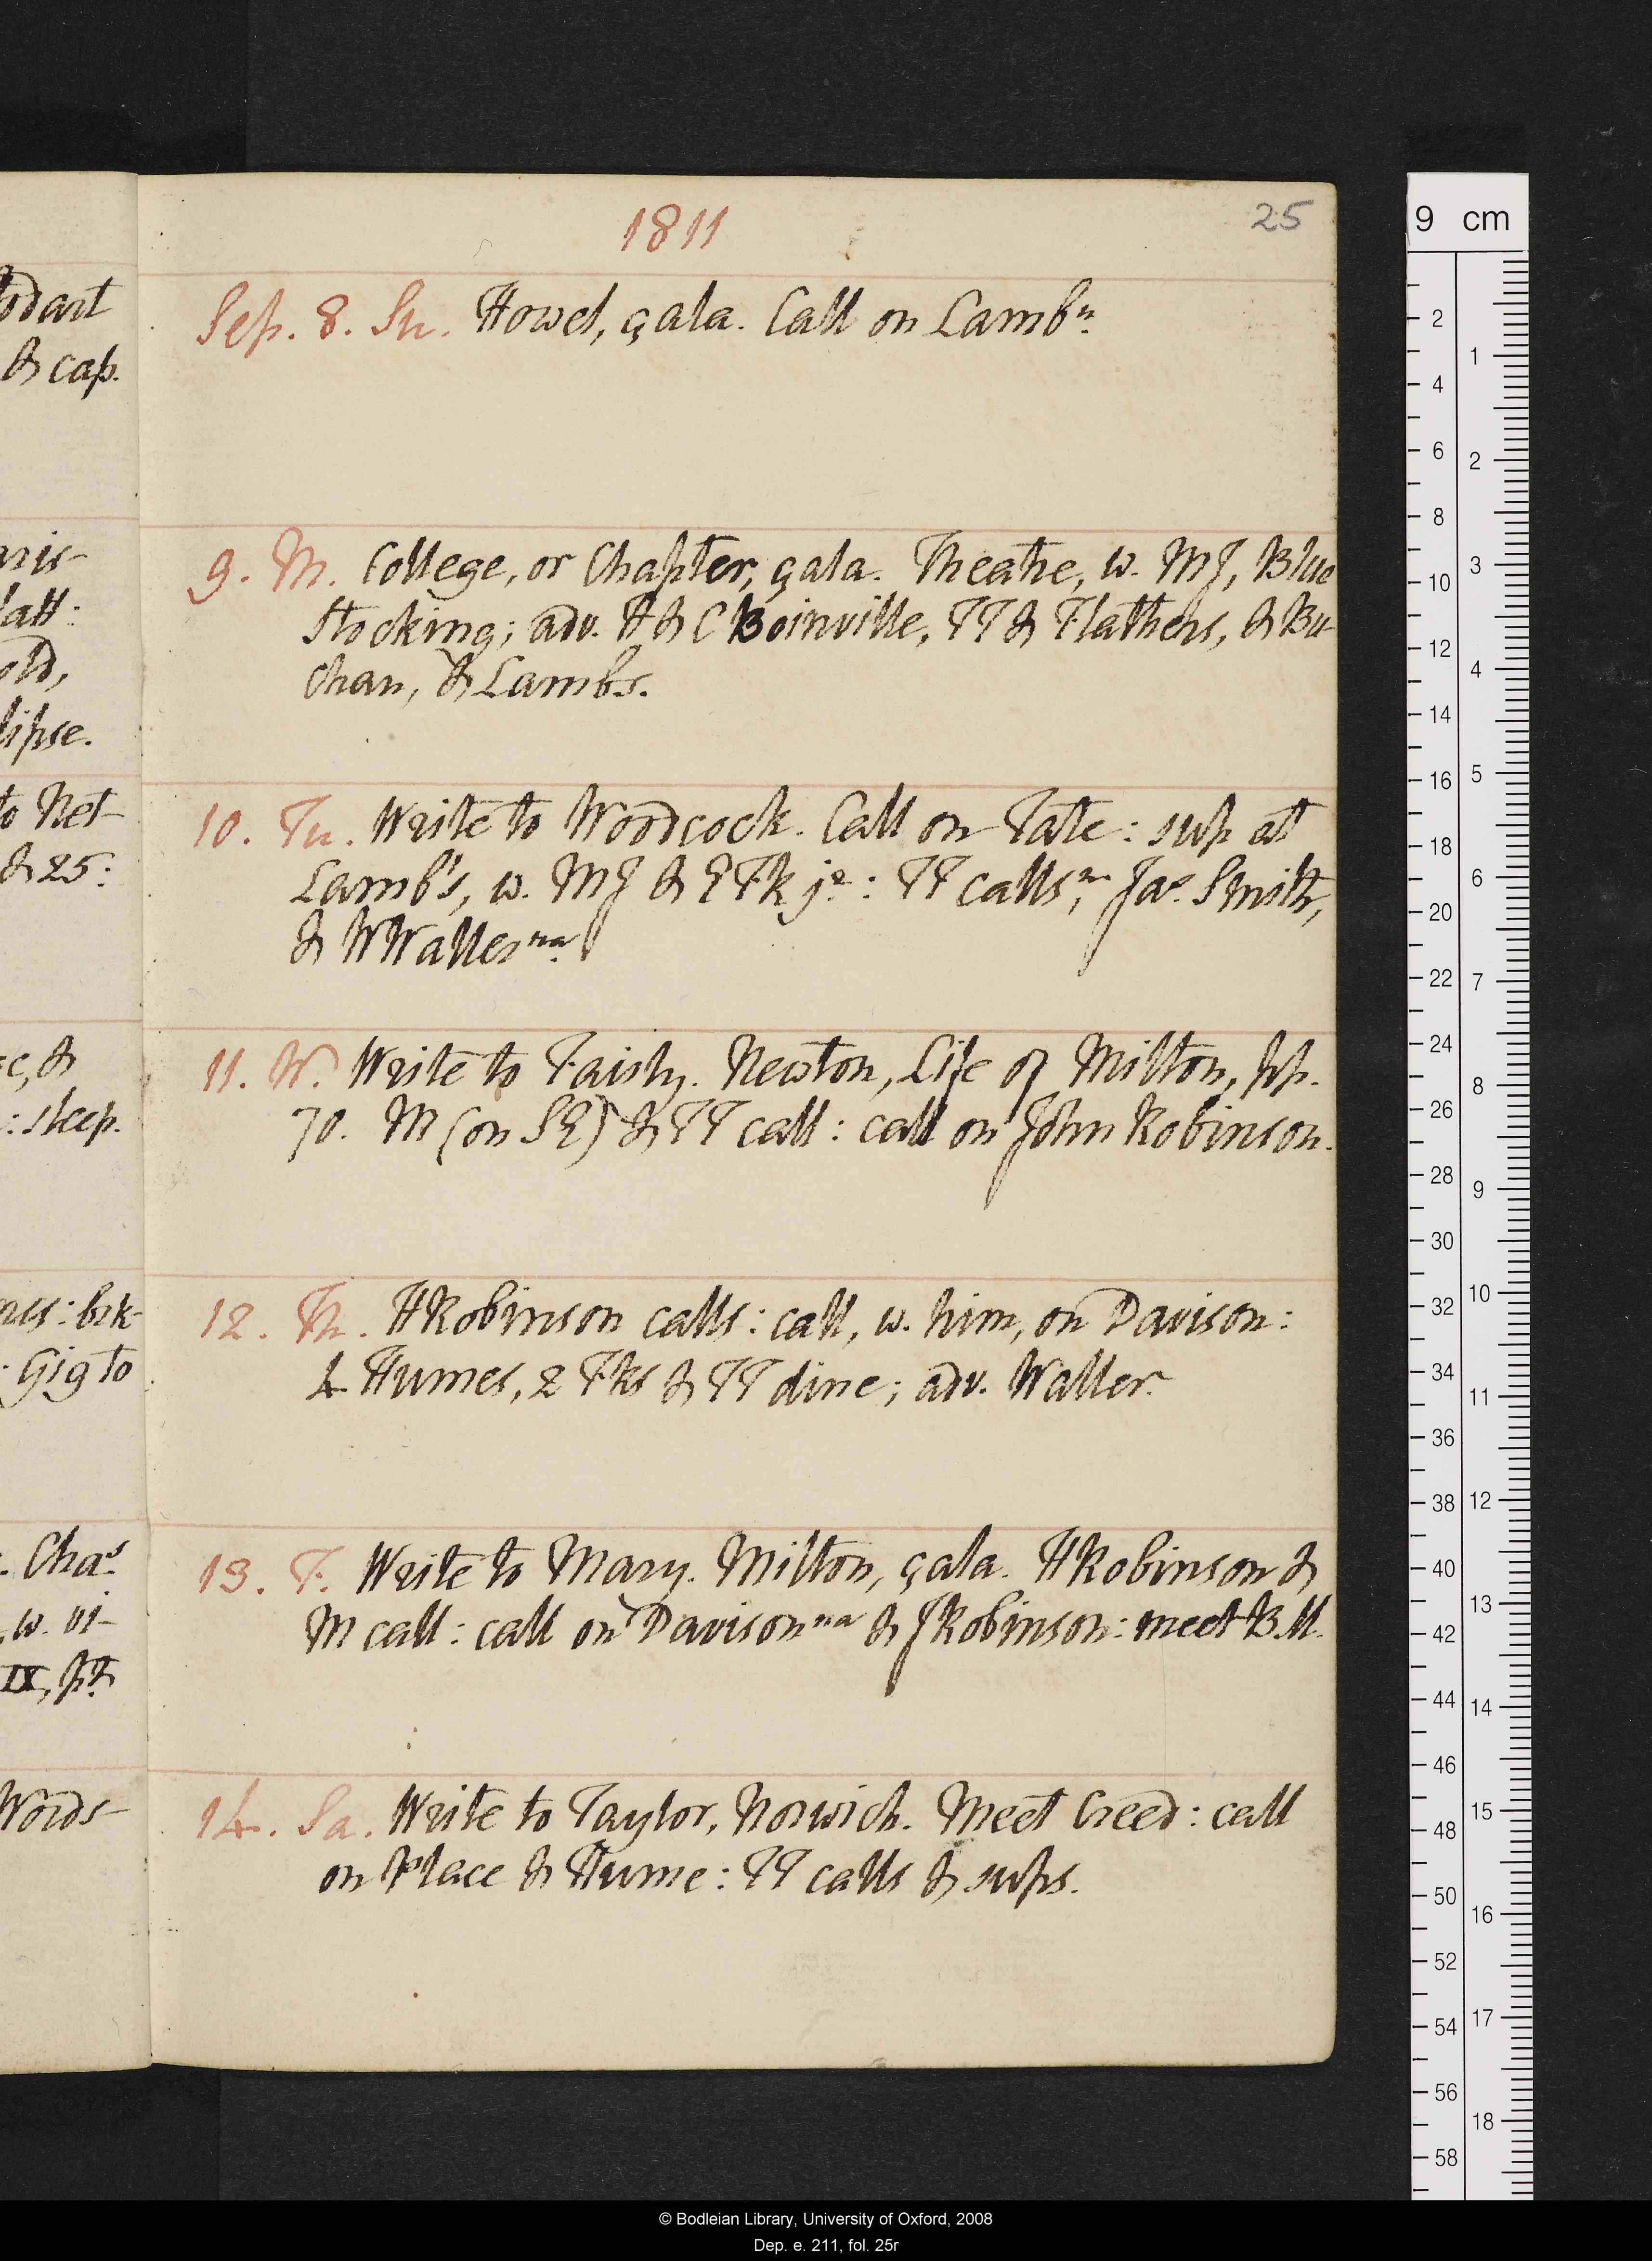 odart
& cap.
aris-
latt:
old,
lipse.
to Net-
& 25:
c, &
: sleep.
mes: brk-
: Gig to
. Chaˢ
, w. vi-
IX, pᵗ
Words-
1811
25
Sep. 8. Su. Howel, çala. Call on Lambⁿ.
9. M. College, or Chapter, çala. Theatre, w. MJ, Blue
Stocking; adv. H & C Boinville, TT & Flathers, & Bu-
chan, & Lambs.
10. Tu. Write to Woodcock. Call on Tate: sup at
Lamb's, w. MJ & E Fk jʳ: TT callsⁿ, Jaˢ Smith,
& W Wallerⁿᵃ.
11. W. Write to Faisty. Newton, Life of Milton, pp.
70. M (on SE) & TT call: call on John Robinson.
12. Th. HRobinson calls: call, w. him, on Davison:
4 Humes, 2 Fks & TT dine; adv. Waller.
13. F. Write to Mary. Milton, çala. HRobinson &
M call: call on Davisonⁿᵃ & JRobinson: meet B.M.
14. Sa. Write to Taylor, Norwich. Meet Creed: call
on Place & Hume: TT calls & sups.
9 cm
2
4
6
8
10
12
14
16
18
20
22
24
26
28
30
32
34
36
38
40
42
44
46
48
50
52
54
56
58
1
2
3
4
5
6
7
8
9
10
11
12
13
14
15
16
17
18
© Bodleian Library, University of Oxford, 2008
Dep. e. 211, fol. 25r